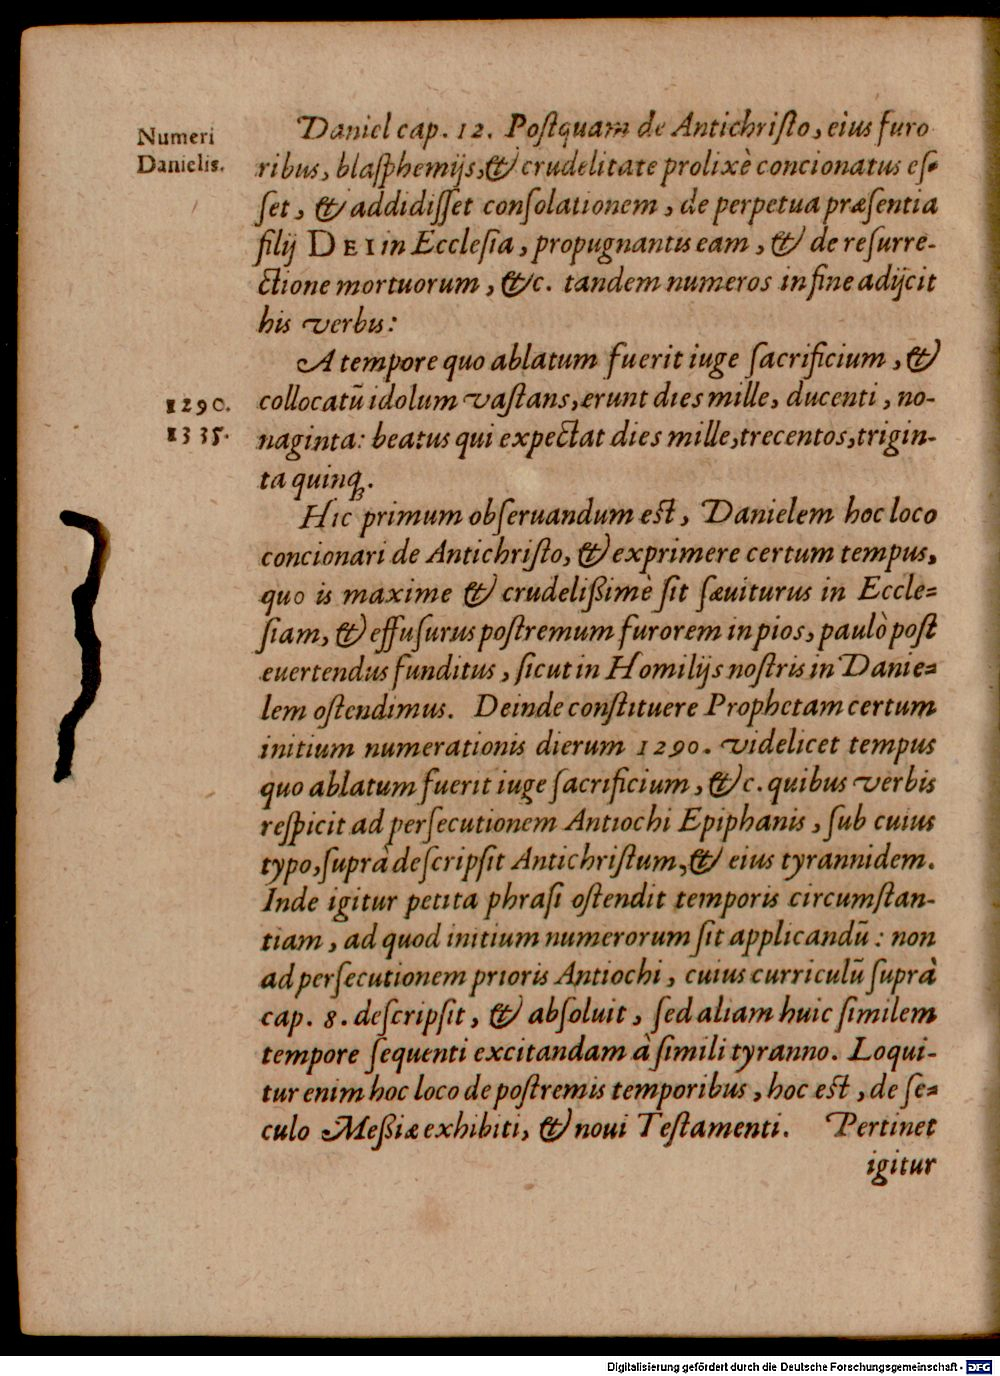 Numeri
Danielis.
Daniel cap. 12. Postquam de Antichristo, eius furo
ribus, blasphemijs, & crudelitate prolixè concionatus es-
set, & addidisset consolationem, de perpetua præsentia
filij DEI in Ecclesia, propugnantis eam, & de resurre-
ctione mortuorum, &c. tandem numeros in fine adijcit
his verbis:
A tempore quo ablatum fuerit iuge sacrificium, &
1290.
collocatū idolum vastans, erunt dies mille, ducenti, no-
1335.
naginta: beatus qui expectat dies mille, trecentos, trigin-
ta quinq;.
Hic primum obseruandum est, Danielem hoc loco
concionari de Antichristo, & exprimere certum tempus,
quo is maxime & crudelißimè sit sæuiturus in Eccle=
siam, & effusurus postremum furorem in pios, paulò post
euertendus funditus, sicut in Homilijs nostris in Danie=
lem ostendimus. Deinde constituere Prophetam certum
initium numerationis dierum 1290. videlicet tempus
quo ablatum fuerit iuge sacrificium, &c. quibus verbis
respicit ad persecutionem Antiochi Epiphanis, sub cuius
typo, suprà descripsit Antichristum, & eius tyrannidem.
Inde igitur petita phrasi ostendit temporis circumstan-
tiam, ad quod initium numerorum sit applicandū: non
ad persecutionem prioris Antiochi, cuius curriculū suprà
cap. 8. descripsit, & absoluit, sed aliam huic similem
tempore sequenti excitandam à simili tyranno. Loqui-
tur enim hoc loco de postremis temporibus, hoc est, de se=
culo Meßiæ exhibiti, & noui Testamenti. Pertinet
igitur
Digitalisierung gefördert durch die Deutsche Forschungsgemeinschaft - DFG